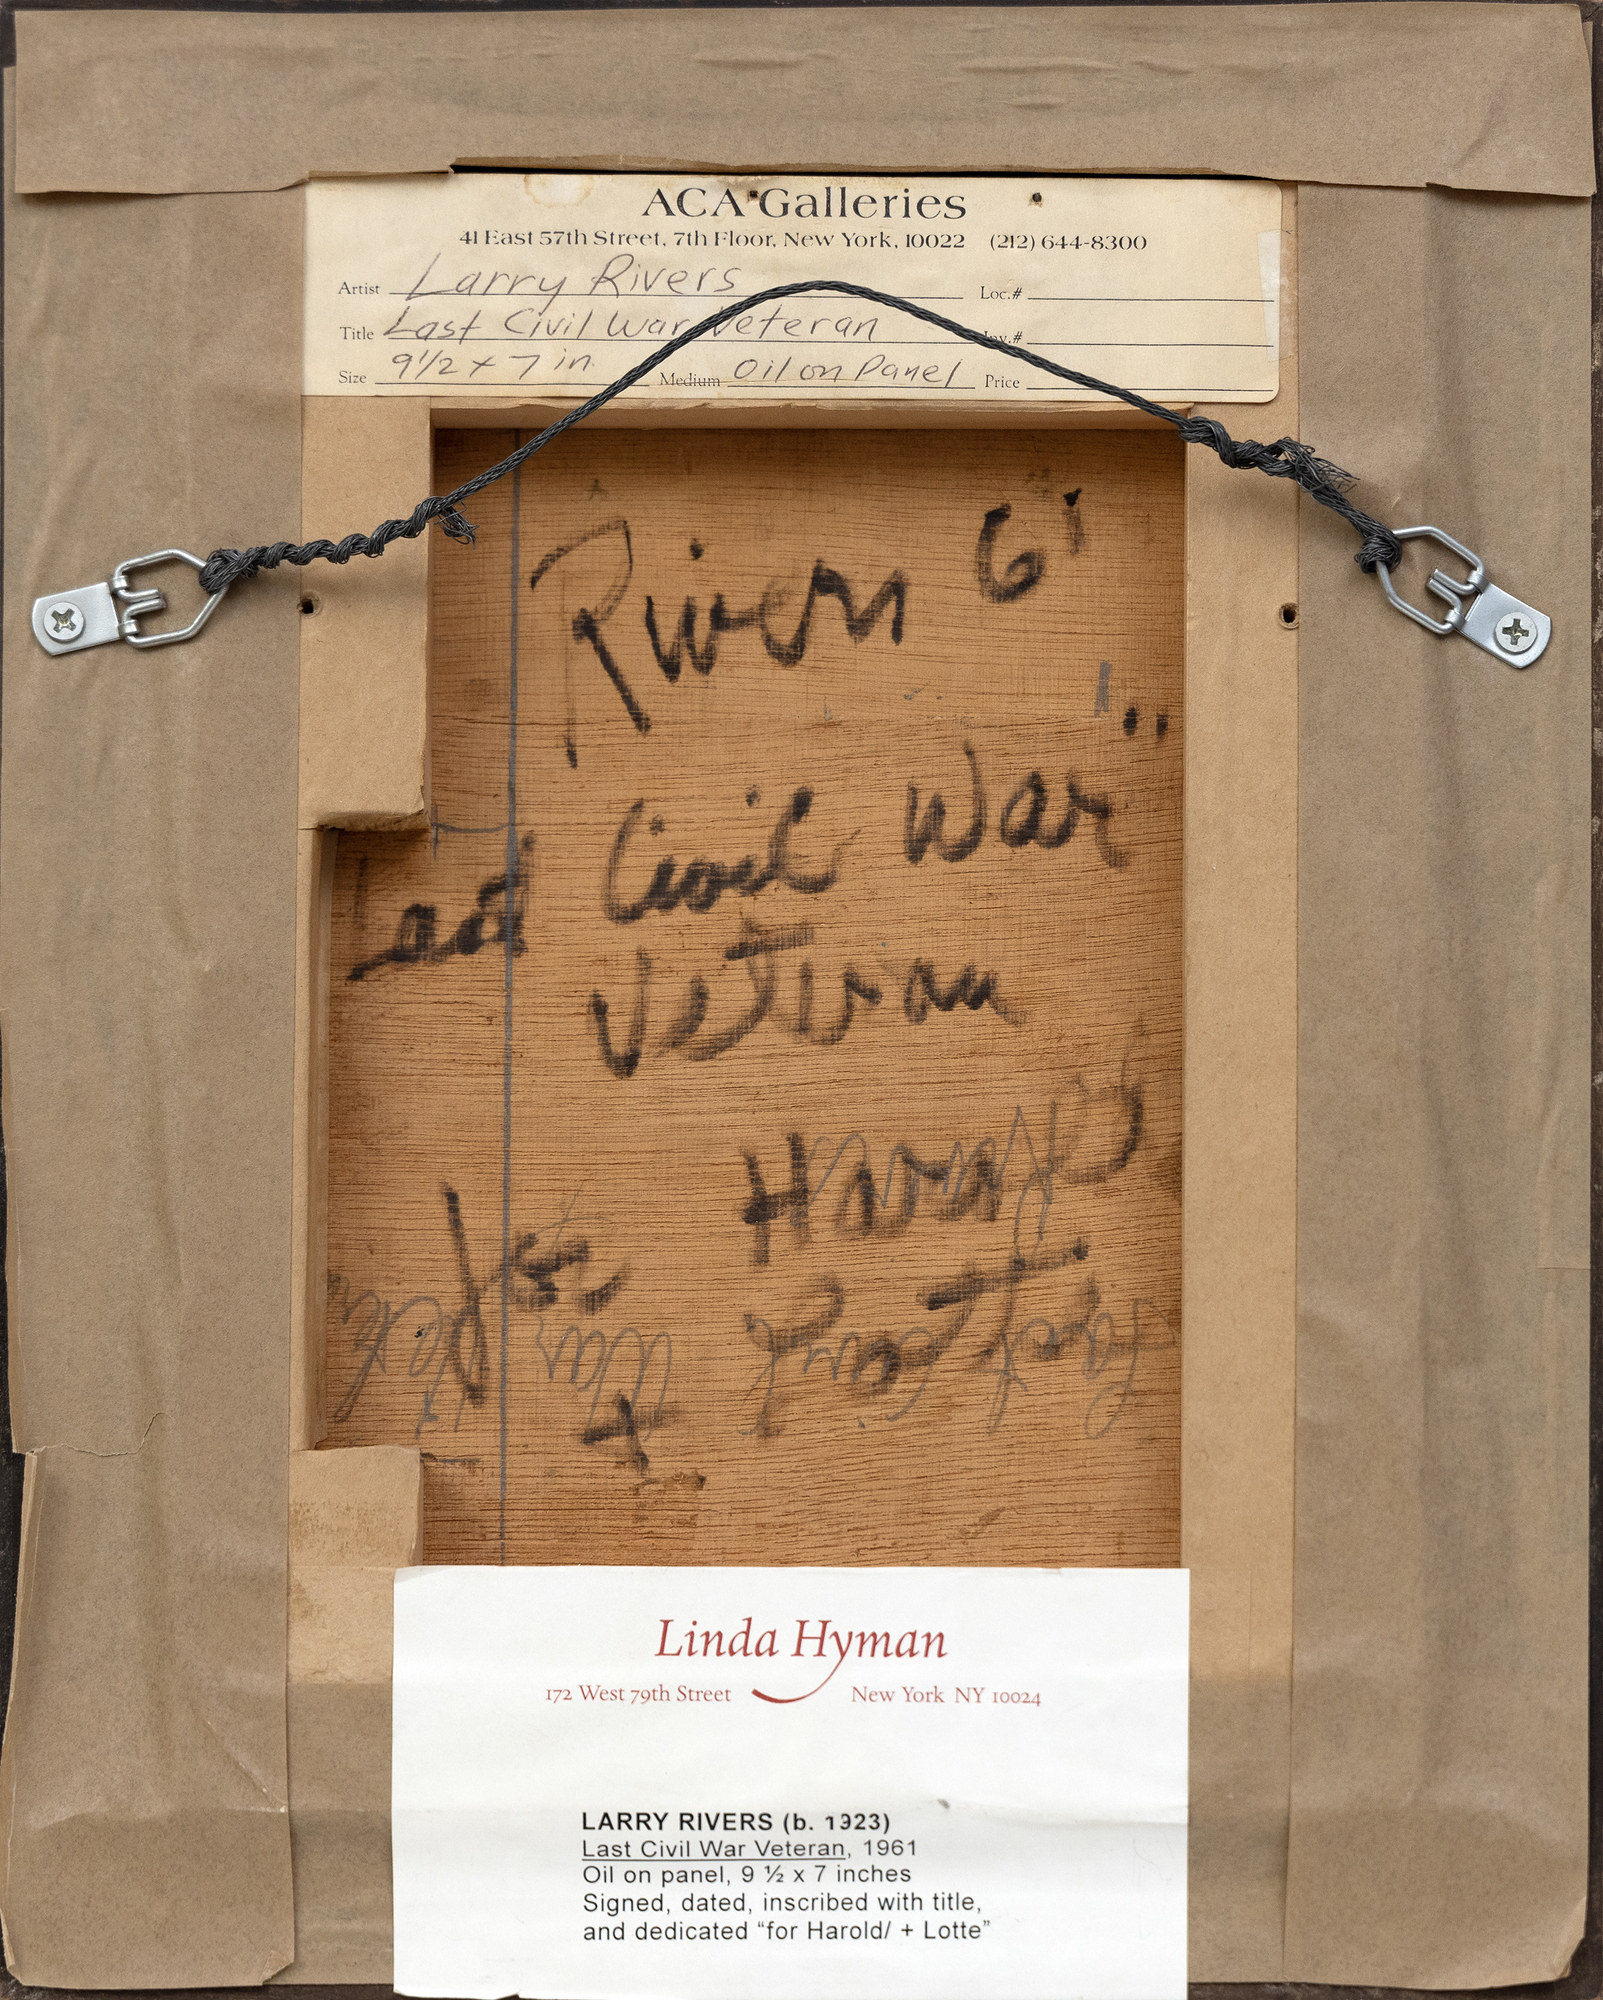 ACA Galleries
41 East 57th Street, 7th Floor, New York, 10022 (212) 644-8300
Artist Larry Rivers Loc.#
Title Last Civil War Veteran Inv.#
Size 9 1/2 x 7 in. Medium Oil on Panel Price
Rivers 61
Last Civil War"
Veteran
for Harold
+
Linda Hyman
172 West 79th Street New York NY 10024
LARRY RIVERS (b. 1923)
Last Civil War Veteran, 1961
Oil on panel, 9 ½ x 7 inches
Signed, dated, inscribed with title,
and dedicated “for Harold/ + Lotte”